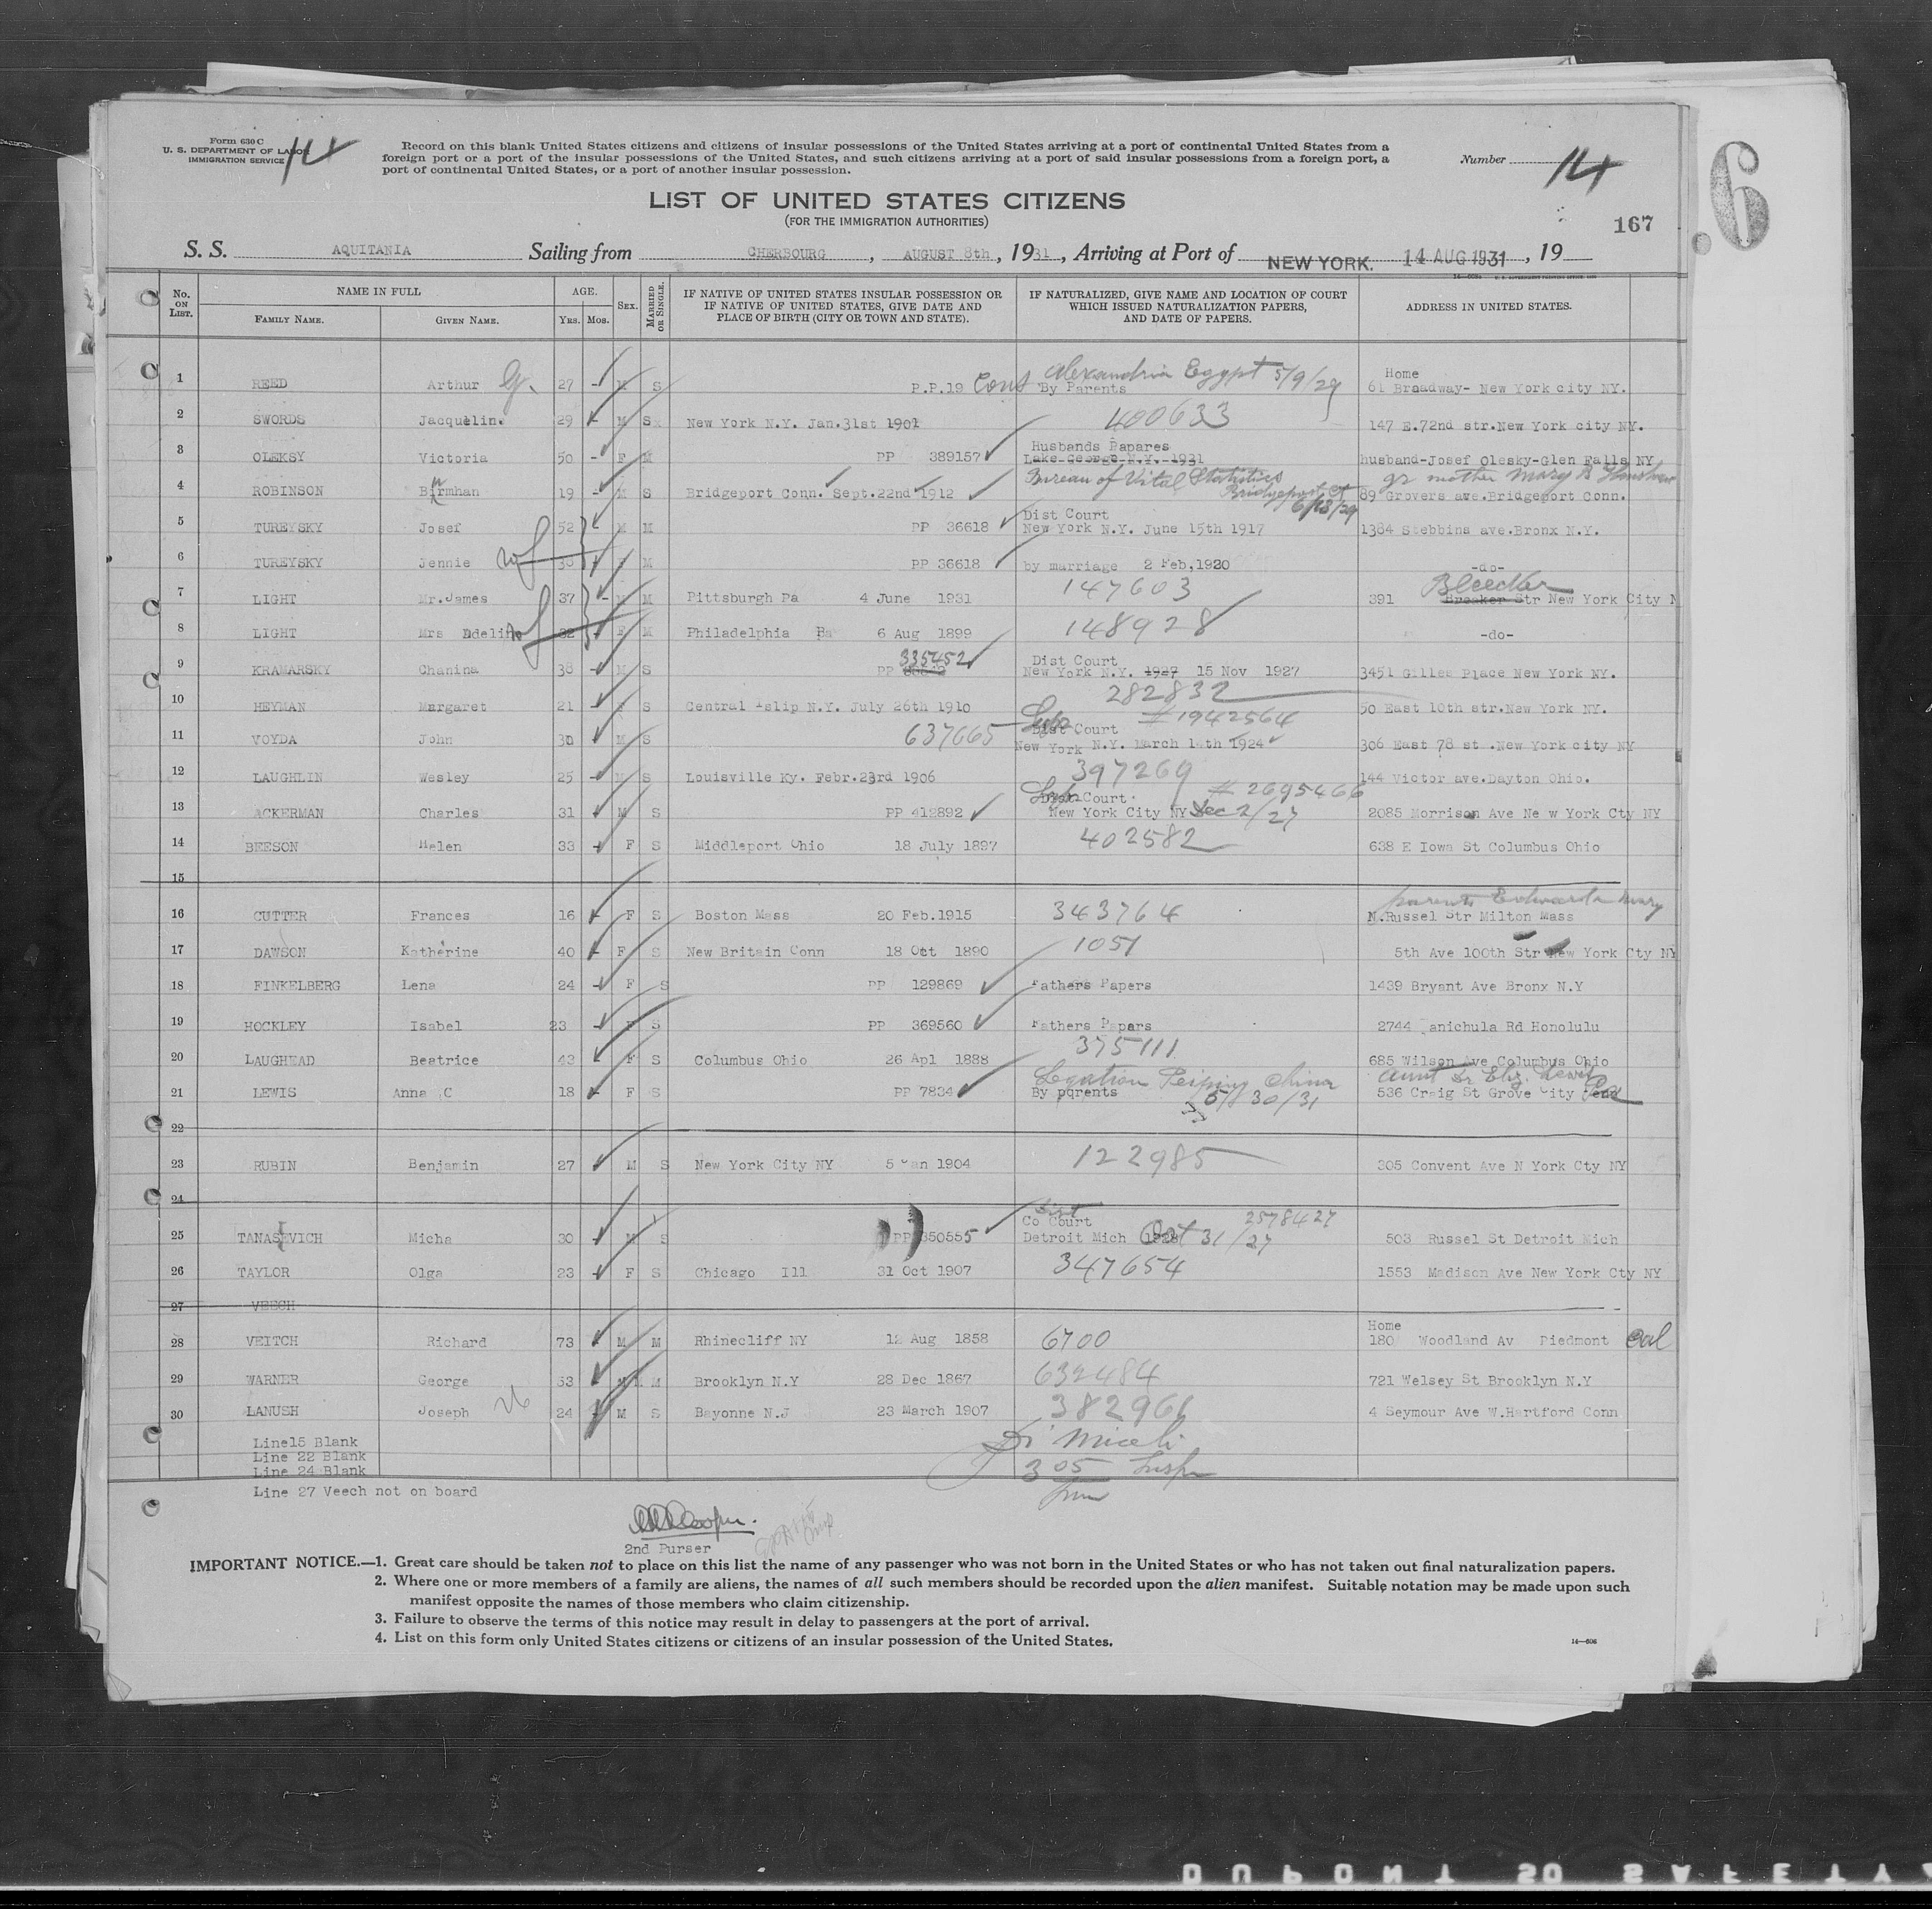 Form 630 C
U. S. DEPARTMENT OF LABOR
IMMIGRATION SERVICE
14
Record on this blank United States citizens and citizens of insular possessions of the United States arriving at a port of continental United States from a
foreign port or a port of the insular possessions of the United States, and such citizens arriving at a port of said insular possessions from a foreign port, a
port of continental United States, or a port of another insular possession.
Number 14
LIST OF UNITED STATES CITIZENS
(FOR THE IMMIGRATION AUTHORITIES)
167
6
S. S. AQUITANIA Sailing from CHERBOURG, AUGUST 8th, 1931, Arriving at Port of NEW YORK. 14 AUG 1931, 19
No. ON LIST. NAME IN FULL AGE. SEX. MARRIED OR SINGLE. IF NATIVE OF UNITED STATES INSULAR POSSESSION OR IF NATIVE OF UNITED STATES, GIVE DATE AND PLACE OF BIRTH (CITY OR TOWN AND STATE). IF NATURALIZED, GIVE NAME AND LOCATION OF COURT WHICH ISSUED NATURALIZATION PAPERS, AND DATE OF PAPERS. ADDRESS IN UNITED STATES.
FAMILY NAME. GIVEN NAME. YRS. MOS.
Alexandria Egypt 5/9/29 Home
1 REED Arthur G. 27 - M S P.P.19 Cons By Parents 61 Broadway- New York city NY.
2 SWORDS Jacqueline 29 - M S New York N.Y. Jan.31st 1901 400633 147 E.72nd str.New York city NY.
Husbands Papares
3 OLEKSY Victoria 50 - F M PP 389157 Lake George N.Y. 1931 husband-Josef Olesky-Glen Falls NY
Bureau of Vital Statistics gr mother Mary B
4 ROBINSON Birmhan 19 - M S Bridgeport Conn. Sept.22nd 1912 Bridgeport Ct 6/13/29 89 Grovers ave.Bridgeport Conn.
Dist Court
5 TUREYSKY Josef 52 M M PP 36618 New York N.Y. June 15th 1917 1384 Stebbins ave.Bronx N.Y.
6 TUREYSKY Jennie 30 F M PP 36618 by marriage 2 Feb,1920 -do-
Bleecker
7 LIGHT Mr.James 37 - M M Pittsburgh Pa 4 June 1931 147603 391 Breaker Str New York City N
8 LIGHT Mrs Edeline 32 F M Philadelphia Pa 6 Aug 1899 148928 -do-
335452 Dist Court
9 KRAMARSKY Chanina 38 - M S PP New York N.Y. 1927 15 Nov 1927 3451 Gilles Place New York NY.
10 HEYMAN Margaret 21 - F S Central Islip N.Y. July 26th 1910 282832 50 East 10th str.New York NY.
Supr # 1942564
Dist Court
11 VOYDA John 30 M S 637665 New York N.Y. March 14th 1924 306 East 78 st .New York city NY
12 LAUGHLIN Wesley 25 - M S Louisville Ky. Febr.23rd 1906 397269 144 Victor ave.Dayton Ohio.
Supr Court # 2695466
13 ACKERMAN Charles 31 M S PP 412892 New York City NY Dec 2/27 2085 Morrison Ave Ne w York Cty NY
14 BEESON Helen 33 - F S Middleport Ohio 18 July 1897 402582 638 E Iowa St Columbus Ohio
15
parents Edward & Mary
16 CUTTER Frances 16 - F S Boston Mass 20 Feb.1915 343764 N.Russel Str Milton Mass
17 DAWSON Katherine 40 - F S New Britain Conn 18 Oct 1890 1051 5th Ave 100th Str New York Cty NY
18 FINKELBERG Lena 24 - F S PP 129869 Fathers Papers 1439 Bryant Ave Bronx N.Y
19 HOCKLEY Isabel 23 - F S PP 369560 Fathers Papars 2744 anichula Rd Honolulu
20 LAUGHEAD Beatrice 43 - F S Columbus Ohio 26 Apl 1888 375111 685 Wilson Ave Columbus Ohio
Legation Peiping China Aunt Dr Eliz. Lewis
21 LEWIS Anna C 18 - F S PP 7834 By pqrents 5/30/31 536 Craig St Grove City Pa
22
23 RUBIN Benjamin 27 M S New York City NY 5 Jan 1904 122985 305 Convent Ave N York Cty NY
24
Dist
Co Court 2578427
25 TANASEVICH Micha 30 - M S PP 350555 Detroit Mich 1928 Oct 31/27 503 Russel St Detroit Mich
26 TAYLOR Olga 23 - F S Chicago Ill 31 Oct 1907 347654 1553 Madison Ave New York Cty NY
27 VEECH
Home
28 VEITCH Richard 73 - M M Rhinecliff NY 12 Aug 1858 6700 180 Woodland Av Piedmont Cal
29 WARNER George 63 M M Brooklyn N.Y 28 Dec 1867 632484 721 Welsey St Brooklyn N.Y
30 LANUSH Joseph 24 - M S Bayonne N.J 23 March 1907 382966 4 Seymour Ave W.Hartford Conn
Line15 Blank
Line 22 Blank
Line 24 Blank
Line 27 Veech not on board
Miceli
305 Inspr
2nd Purser
IMPORTANT NOTICE.—1. Great care should be taken not to place on this list the name of any passenger who was not born in the United States or who has not taken out final naturalization papers.
2. Where one or more members of a family are aliens, the names of all such members should be recorded upon the alien manifest. Suitable notation may be made upon such
manifest opposite the names of those members who claim citizenship.
3. Failure to observe the terms of this notice may result in delay to passengers at the port of arrival.
4. List on this form only United States citizens or citizens of an insular possession of the United States.
14—606
DUPONT SAFETY